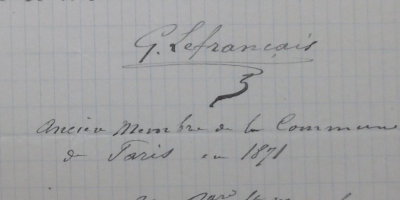 G. Lefrançais
Ancien Membre de la Commune
de Paris en 1871